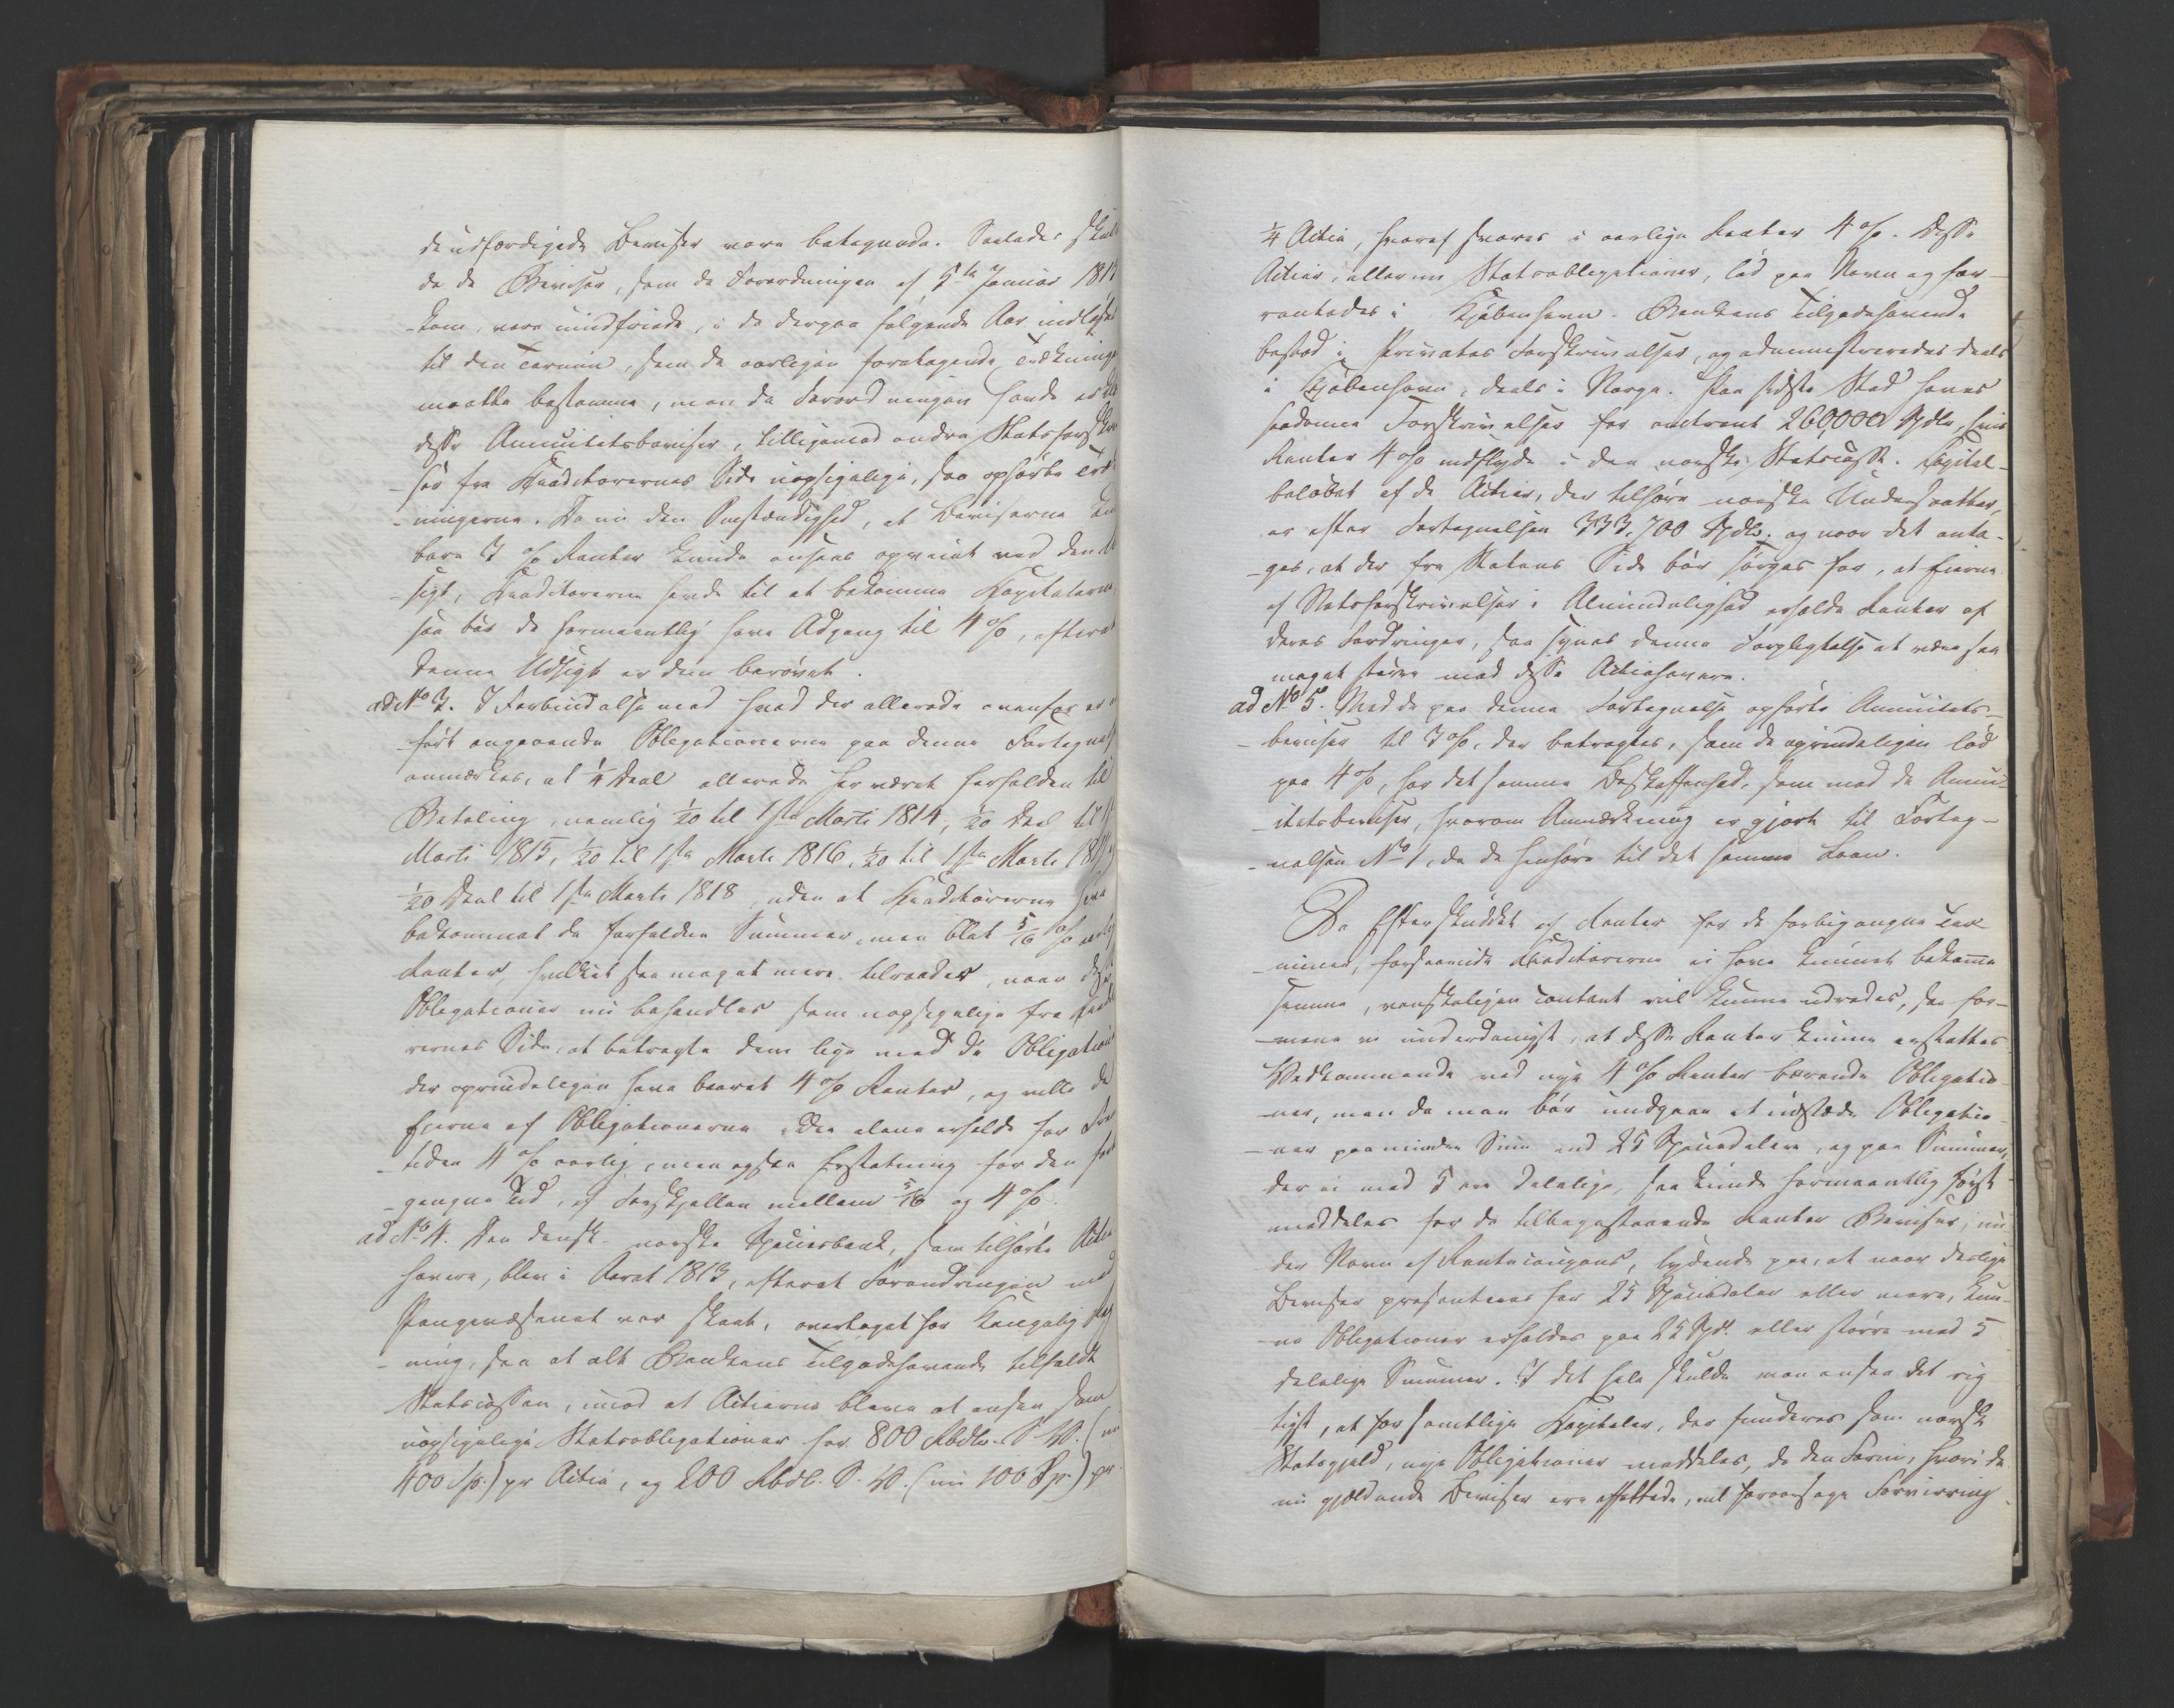 de udfærdigede Beviser vare betegnede. Saaledes skul
de de Beviser, som da Forordningen af 5te Januar 1813
-kom, vare uindfriede, i de derpaa følgende Aar indløses
til den Termin, som de aarligen foretagende Trækninger
maatte bestemme, men da Forordningen havde
disse Annuitetsbeviser, tilligemed andre Statsforskri
-ser fra Kreditorernes Side uopsigelige, saa ophørte Træk
-ningerne. Da nu den Omstændighed, at Beviserne kun
bare 3 % Renter kunde ansees opveiet ved den
-sigt, Kreditorerne havde til at bekomme Kapitalerne
saa bør de formeentlig have Adgang til 4 %, efterat
denne Udsigt er dem berøvet.
ad No 3. I Forbindelse med hvad der allerede ovenfor er
-ført angaaende Obligationerne paa denne Fortegnelse
anmærkes, at ¼ Deel allerede har været forfalden til
Betaling, nemlig 1/20 til 1ste Marti 1814, 1/20 Deel til
Marti 1815, 1/20 til 1ste Marti 1816, 1/20 til 1ste Marti 1817
1/20 Deel til 1ste Marti 1818, uden at Kreditorerne have
bekommet de forfaldne Summer, men blot 5/16 % aarlig
Renter, hvilket saa meget mere tilraader, naar disse
Obligationer nu behandles som uopsigelige fra Kredito
rernes Side, at betragte dem lige med de Obligationer
der oprindeligen have baaret 4 % Renter, og ville de
Eierne af Obligationerne ikke alene erholde for Frem
-tiden 4 % aarlig, men ogsaa Erstatning for den for
-gangne Tid, af Forskjellen mellem 5/16 og 4 %.
ad No 4. Den dansk-norske Speciesbank, som tilhørte Actie
havere, blev i Aaret 1813, efterat Forandringen med
Pengevæsenet var skeet, overtaget for Kongelig Reg
-ning, saa at alt Bankens Tilgodehavende tilfaldt
Statscassen, imod at Actierne bleve at ansee som
uopsigelige Statsobligationer for 800 Rbdlr. S. V. (nu
400 Sp.) pr Actie, og 200 Rbdl. S. V. (nu 100 Sp.) pr
¼ Actie, hvoraf svares i aarlige Renter 4 %. Disse
Actier, eller nu Statsobligationer, lød paa Navn og for-
rentedes i Kjøbenhavn. Bankens Tilgodehavende
bestod i Privates Forskrivelser, og administreredes deels
i Kjøbenhavn, deels i Norge. Paa sidste Sted haves
saadanne Forskrivelser for omtrent 260,000 Spdlr, hvis
Renter 4 % indflyde i den norske Statscasse. Capital-
beløbet af de Actier, der tilhøre norske Undersaatter,
er efter Fortegnelsen 333,700 Spdlr. og naar det anta-
-ges, at der fra Statens Side bør sørges for, at Eierne
af Statsforskrivelser i Almindelighed erholde Renter af
deres Fordringer, saa synes denne Forpligtelse at være saa
meget større mod disse Actiehavere.
ad No 5. Med de paa denne Fortegnelse opførte Annuitets-
-beviser til 3 %, der betragtes, som de oprindeligen lød
paa 4 %, har det samme Beskaffenhed, som med de Annu-
-itetsbeviser, hvorom Anmærkning er gjort til Forteg-
-nelsen No 1, da de henhøre til det samme Laan.
Da Efterskuddet af Renter for de forbigangne Ter-
-miner, forsaavidt Kreditorerne ei have kunnet bekomme
samme, vanskeligen contant vil kunne udredes, saa for-
-mene vi underdanigst, at disse Renter kunne erstattes
Vedkommende ved nye 4 % Renter bærende Obligatio-
-ner, men da man bør undgaae at udstæde Obligatio-
-ner paa mindre Sum end 25 Speciedaler, og paa Summer,
der ei med 5 ere delelige, saa kunde formeentlig først
meddeles for de tilbagestaaende Renter Beviser, un
der Navn af Rentecoupons, lydende paa, at naar deslige
Beviser præsenteres for 25 Speciedaler eller mere, kun-
-ne Obligationer erholdes paa 25 Spd. eller større med 5
delelige Summer. I det hele skulde man ansee det rig
tigst, at for samtlige Kapitaler, der funderes som norsk
Statsgjeld, nye Obligationer meddeles, da den Form, hvori de
nu gjældende Beviser ere affattede, vil foraarsage Forvirring